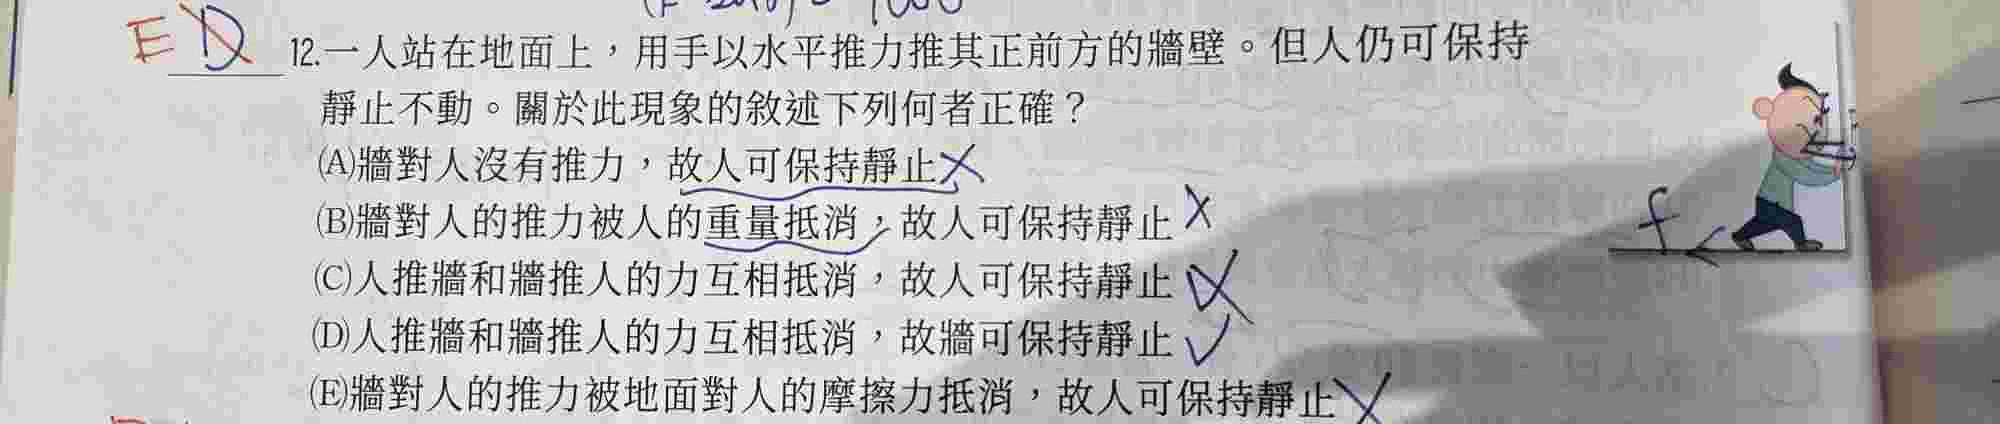 E D 12.一人站在地面上，用手以水平推力推其正前方的牆壁。但人仍可保持
靜止不動。關於此現象的敘述下列何者正確？
(A)牆對人沒有推力，故人可保持靜止×
(B)牆對人的推力被人的重量抵消，故人可保持靜止×
f
(C)人推牆和牆推人的力互相抵消，故人可保持靜止
(D)人推牆和牆推人的力互相抵消，故牆可保持靜止✓
(E)牆對人的推力被地面對人的摩擦力抵消，故人可保持靜止×